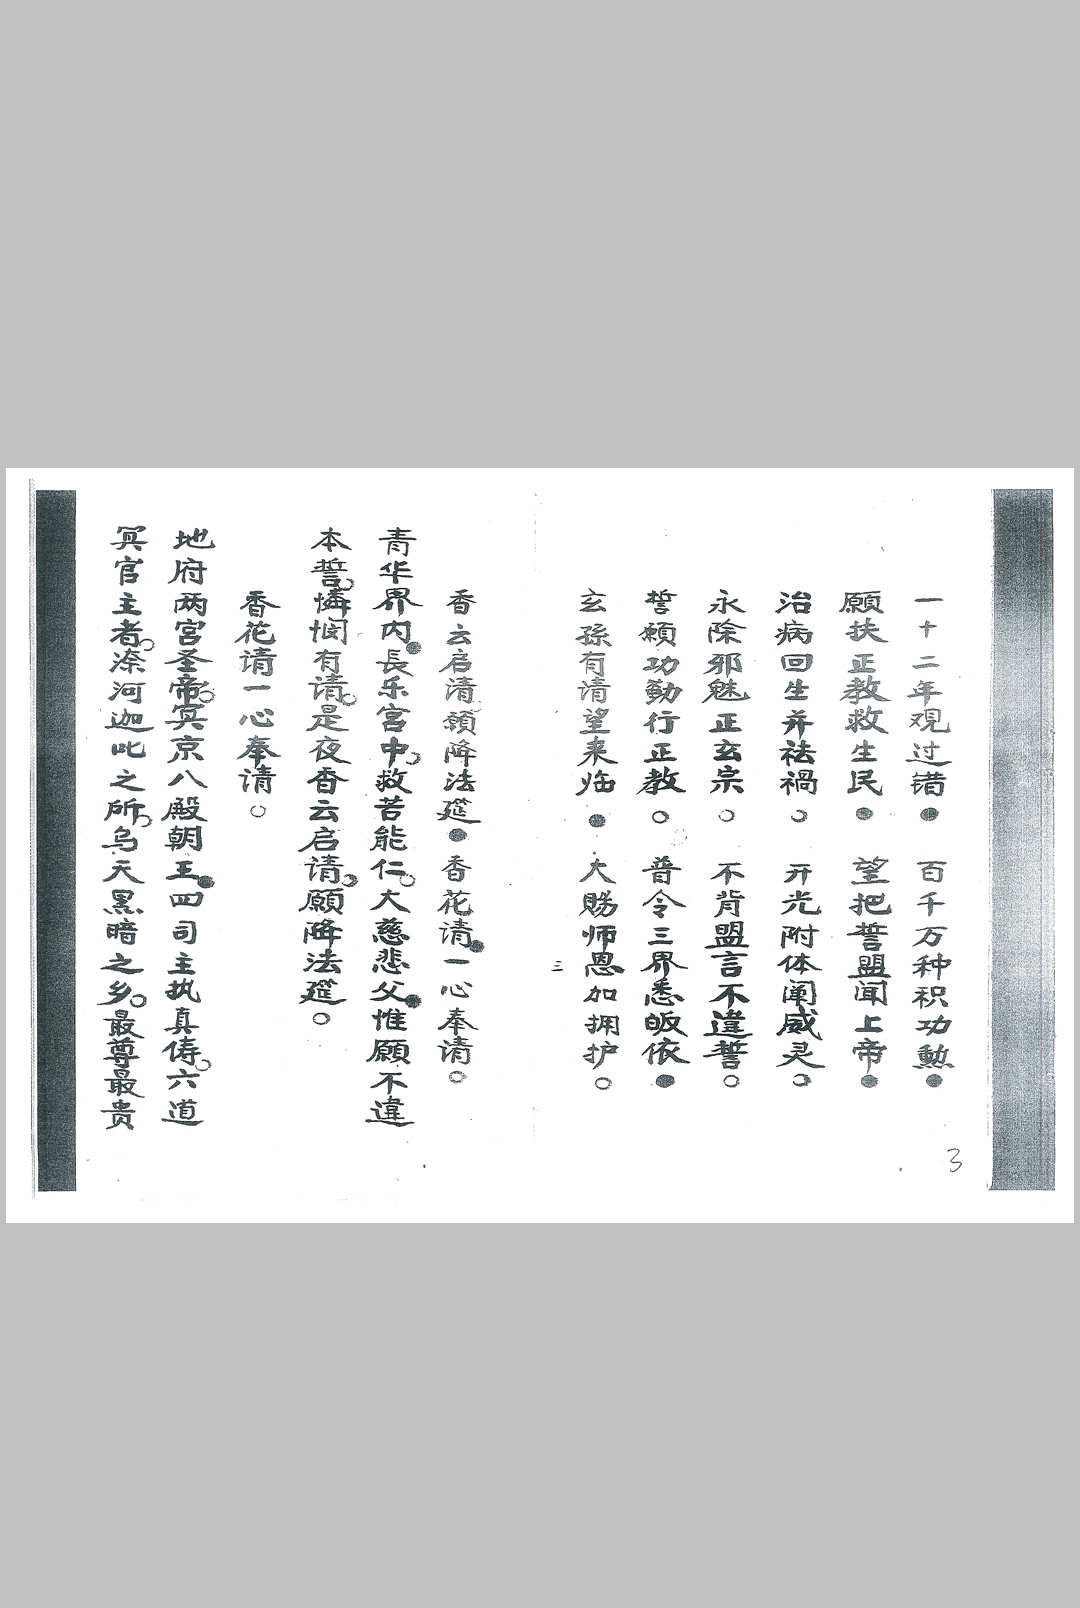 一十二年观过错●百千万种积功勲●
願扶正教救生民●望把誓盟闻上帝●
治病回生并祛禍○开光附体阐威灵○
永除邪魅正玄宗○不背盟言不違誓○
誓願功勤行正教○普令三界悉皈依●
玄孫有请望来临●大賜师恩加拥护○
三
香云启请願降法筵●香花请●一心奉请○
青华界内●長乐宫中○救苦能仁○大慈悲父●惟願不違
本誓○憐悯有请○是夜香云启请○願降法筵○
香花请一心奉请○
地府两宫圣帝○冥京八殿朝王●四司主执真俦○六道
冥官主者○漆河迦叱之所○乌天黑暗之乡○最尊最贵
3